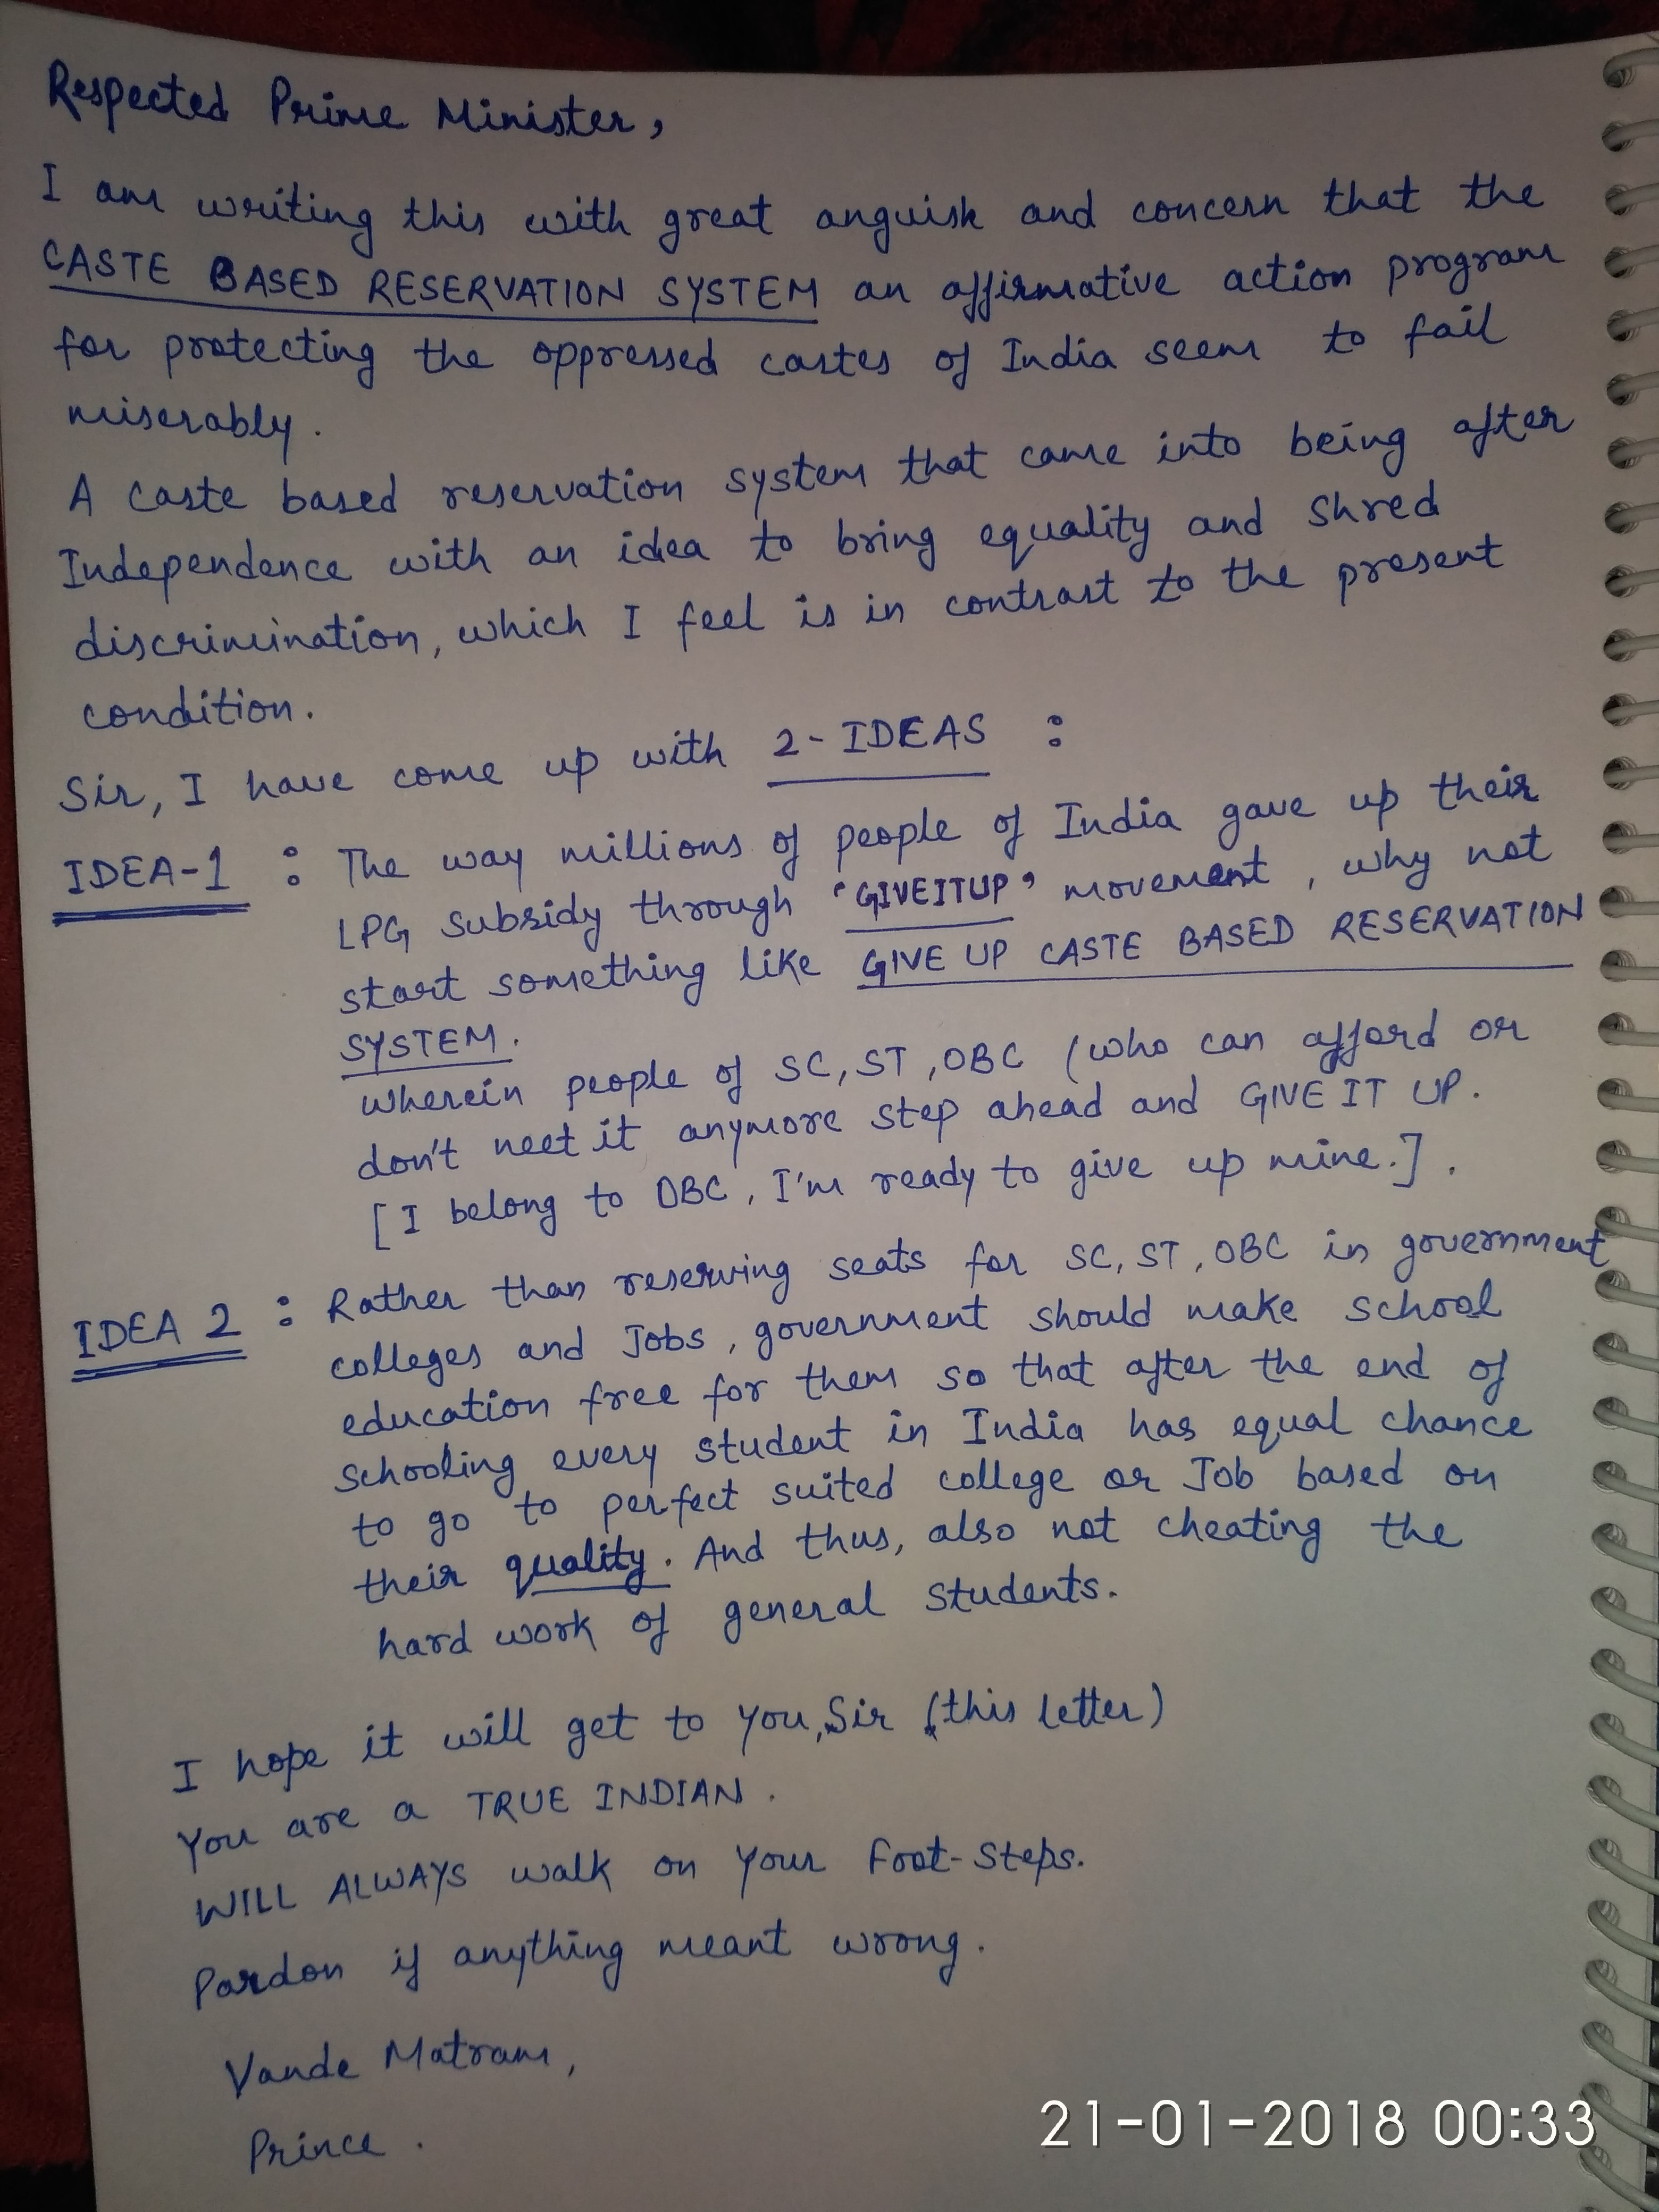 Respected Prime Minister,
I am writing this with great anguish and concern that the
CASTE BASED RESERVATION SYSTEM an affirmative action program
for protecting the oppressed castes of India seem to fail
miserably.
A caste based reservation system that came into being after
Independence with an idea to bring equality and shred
discrimination, which I feel is in contrast to the present
condition.
Sir, I have come up with 2-IDEAS :
IDEA-1 : The way millions of people of India gave up their
LPG subsidy through 'GIVEITUP' movement, why not
start something like GIVE UP CASTE BASED RESERVATION
SYSTEM.
wherein people of SC, ST, OBC (who can afford or
don't neet it anymore step ahead and GIVE IT UP.
[I belong to OBC, I'm ready to give up mine.].
IDEA 2 : Rather than reserving seats for SC, ST, OBC in government
colleges and Jobs, government should make school
education free for them so that after the end of
schooling every student in India has equal chance
to go to perfect suited college or Job based on
their quality. And thus, also not cheating the
hard work of general students.
I hope it will get to you, Sir (this letter)
You are a TRUE INDIAN.
WILL ALWAYS walk on your Foot-Steps.
Pardon if anything meant wrong.
Vande Matram,
Prince.
21-01-2018 00:33